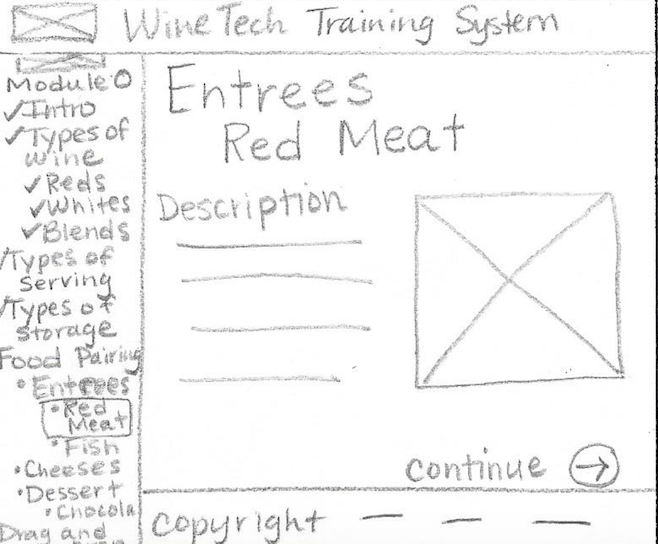 WineTech Training System
Module 0
✓Intro
✓Types of
wine
✓Reds
✓Whites
✓Blends
✓Types of
serving
✓Types of
storage
Food Pairing
• Entrees
• Red
Meat
• Fish
• Cheeses
• Dessert
• Chocola
Drag and
Entrees
Red Meat
Description
continue →
copyright